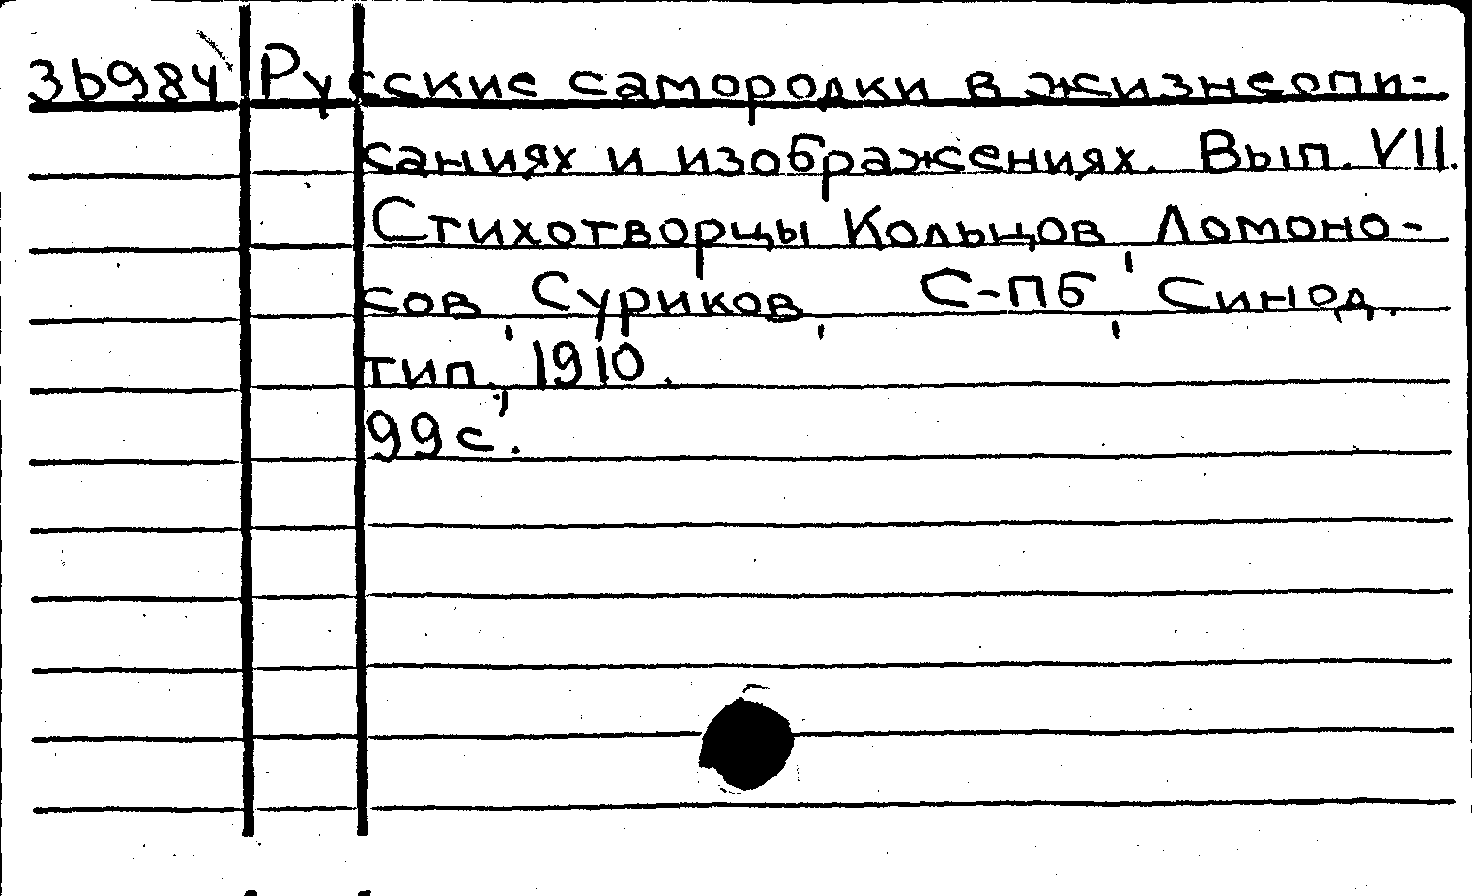 3b984 Русские самородки в жизнеопи-
саниях и изображениях. Вып. VII.
Стихотворцы Кольцов, Ломоно-
сов, Суриков, С-ПБ, Синод.
тип., 1910.
99 с.